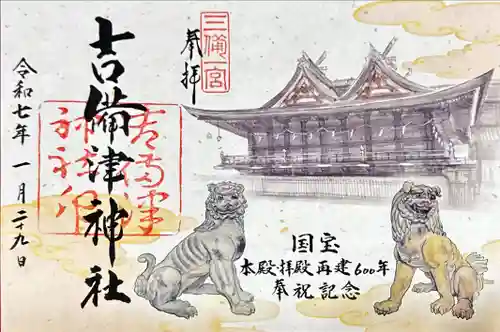 三備一宮
奉拝
吉備津神社
令和七年 一月二十九日
国宝
本殿拝殿再建600年
奉祝記念